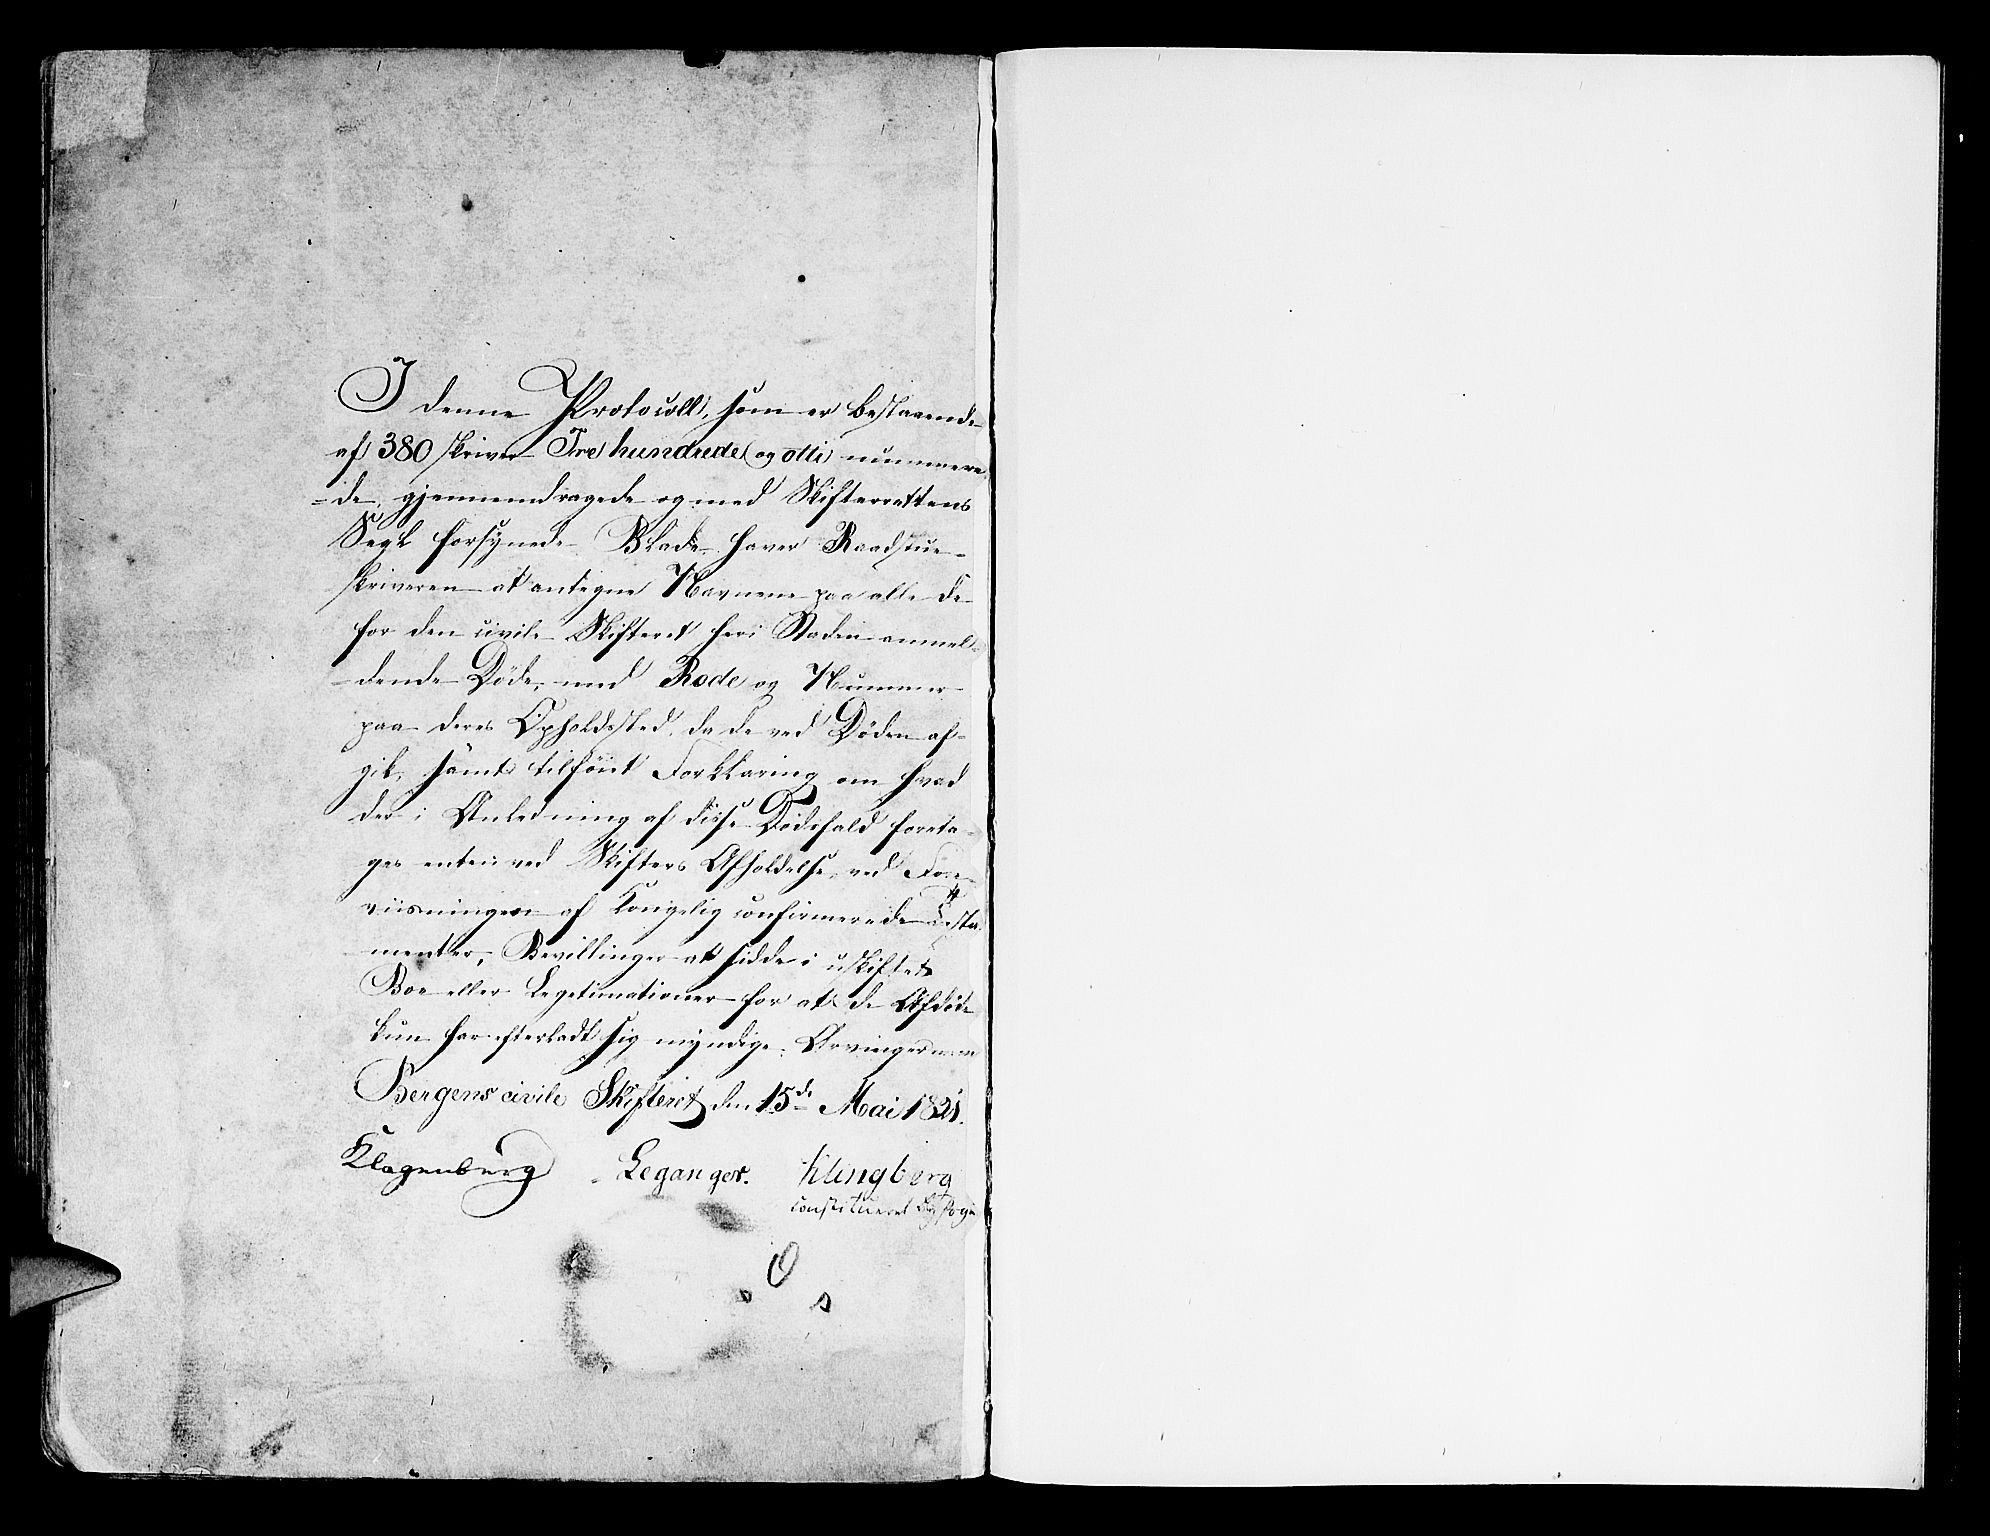 I denne Protocoll, som er bestaaende
af 380 skriver Tre hundrede og otti nummere
-de, gjennemdragede og med Skifterettens
Segl forsynede Blade haver Raadstue-
skriveren at antegne Navnene paa alle de
for den civile Skifteret heri Staden anmel-
-dende Døde, med Rode og Nummer
paa deres Opholdssted, da de ved Døden af-
gik, samt tilføiet Forklaring om hvad
der i Anledning af disse Dødsfald foreta-
ges enten ved Skifters Afholdelse, ved Fore-
viisningen af Kongelig confirmerede Testa
menter, Bevillinger at sidde i uskiftet
Boe eller Legetimationer for at de Afdøde
kun har efterladt sig myndige Arvinger
Bergens civile Skifteret den 15de Mai 1821.
Klagenberg Leganger. Klingberg
constitueret Byfoged